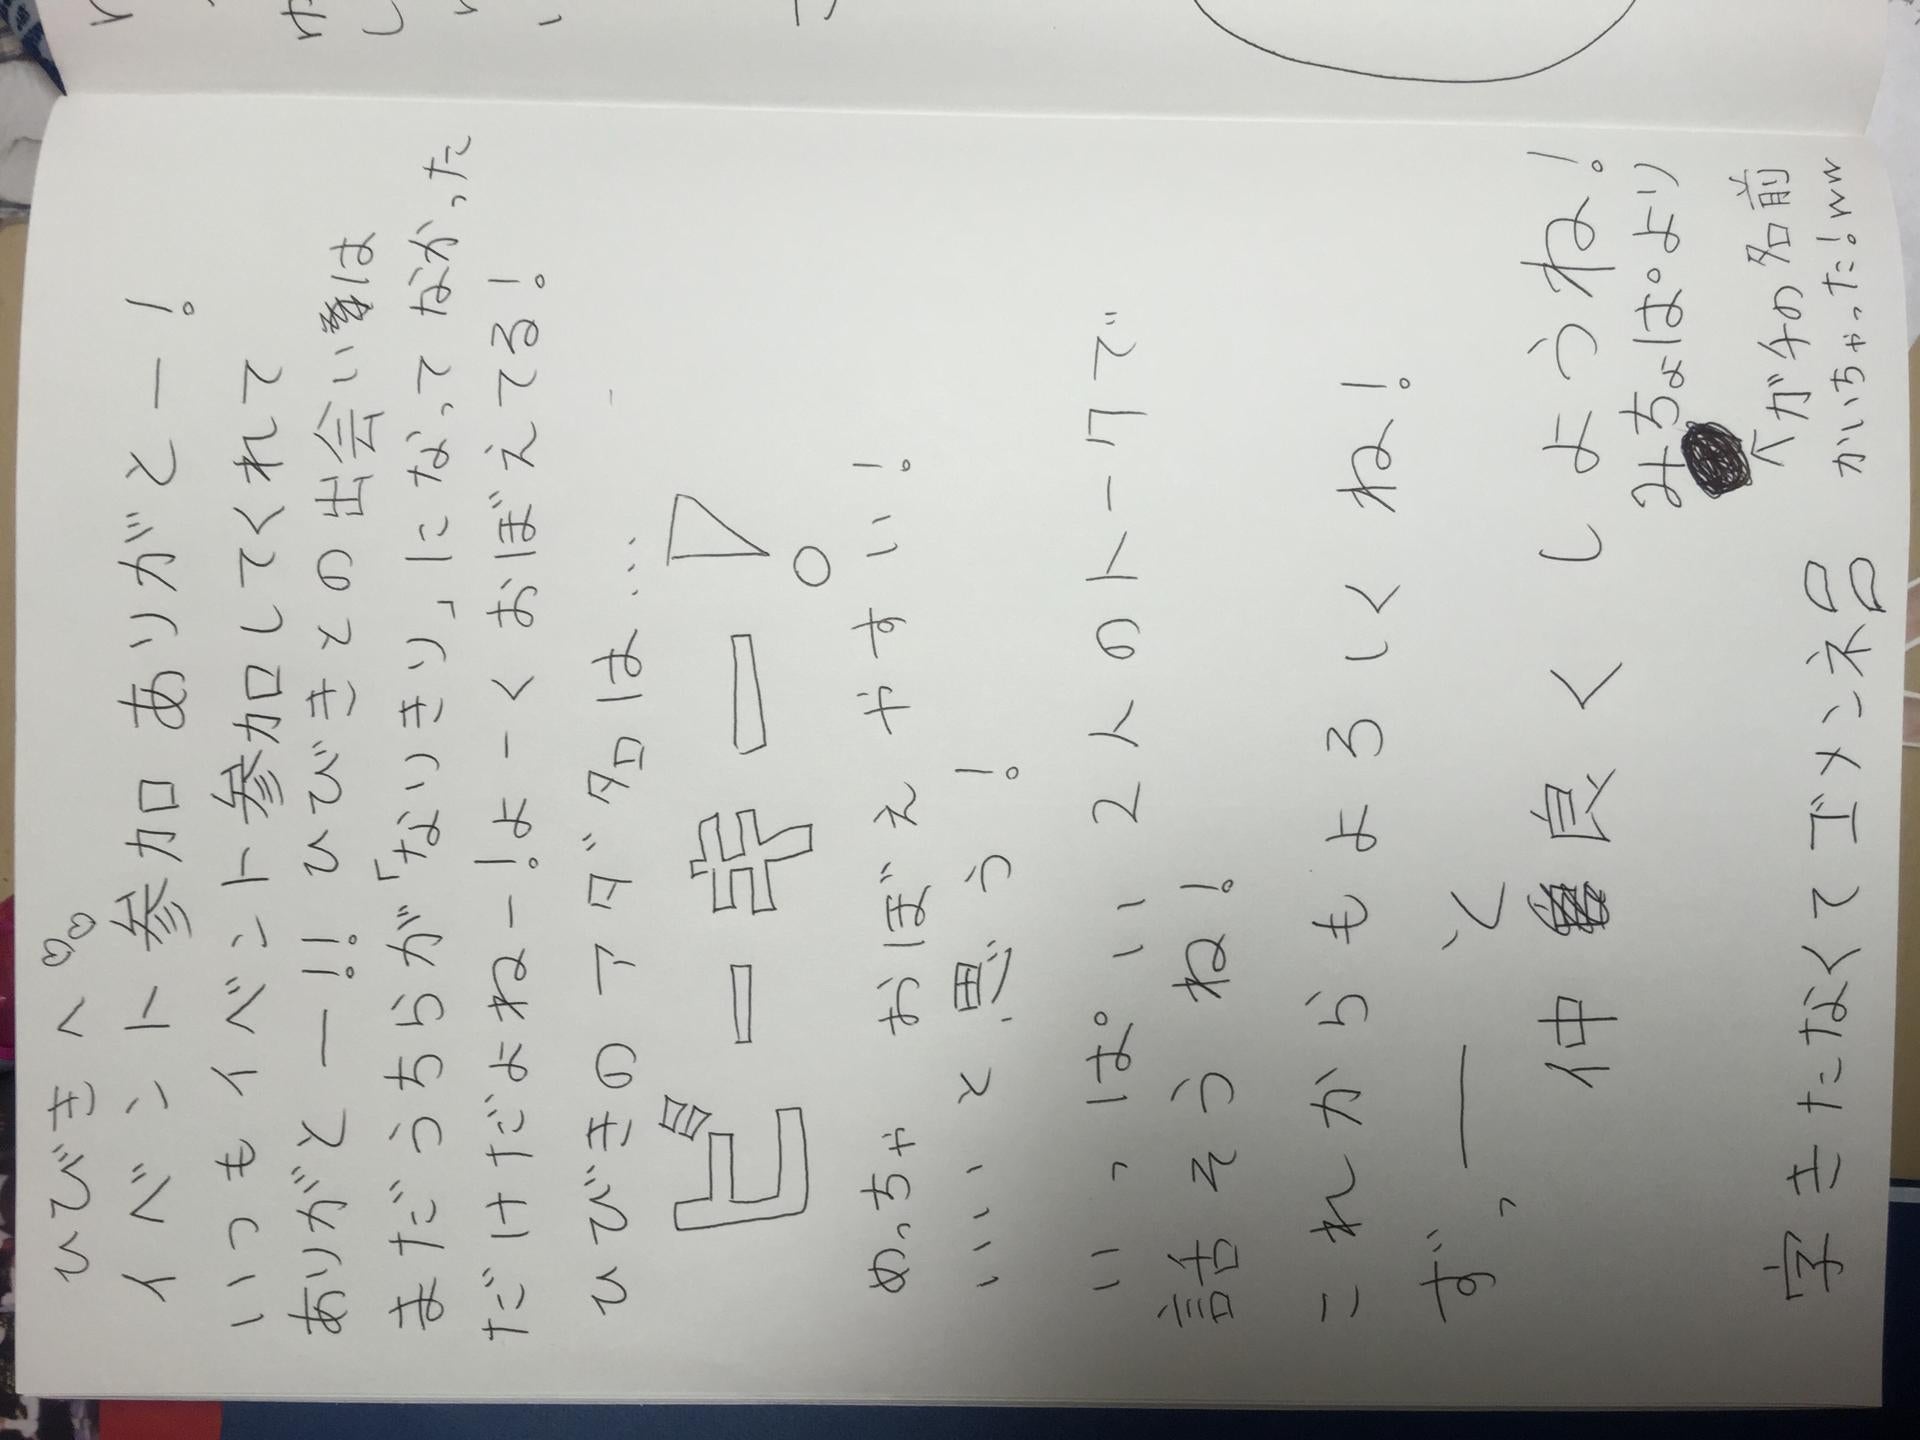 ひびきへ♡♡
イベント参加ありがとー!
いつもイベント参加してくれて
ありがとー!! ひびきとの出会いは
まだうちらが「なりきり」になってなかった
だけだよねー!よーくおぼえてる!
ひびきのアダ名は…
ビーキー!。
めっちゃ おぼえやすい!
いいと思う!
いっぱい2人のトークで
話そうね!
これからもよろしくね!
ず、——っと
仲良くしようね!
みちょぱより
↑ガチの名前
かいちゃった!ww
字きたなくてゴメンネ